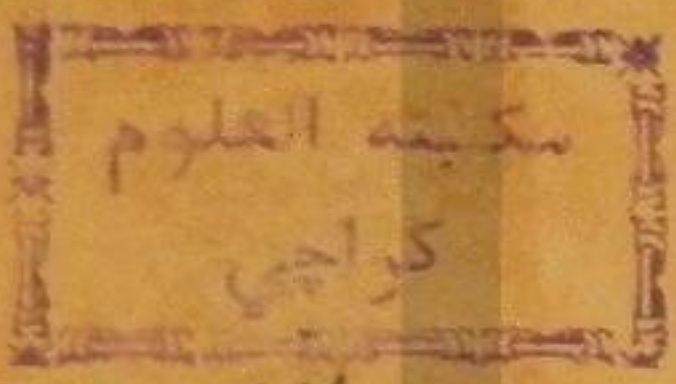 مكتبه العلوم
كراچي